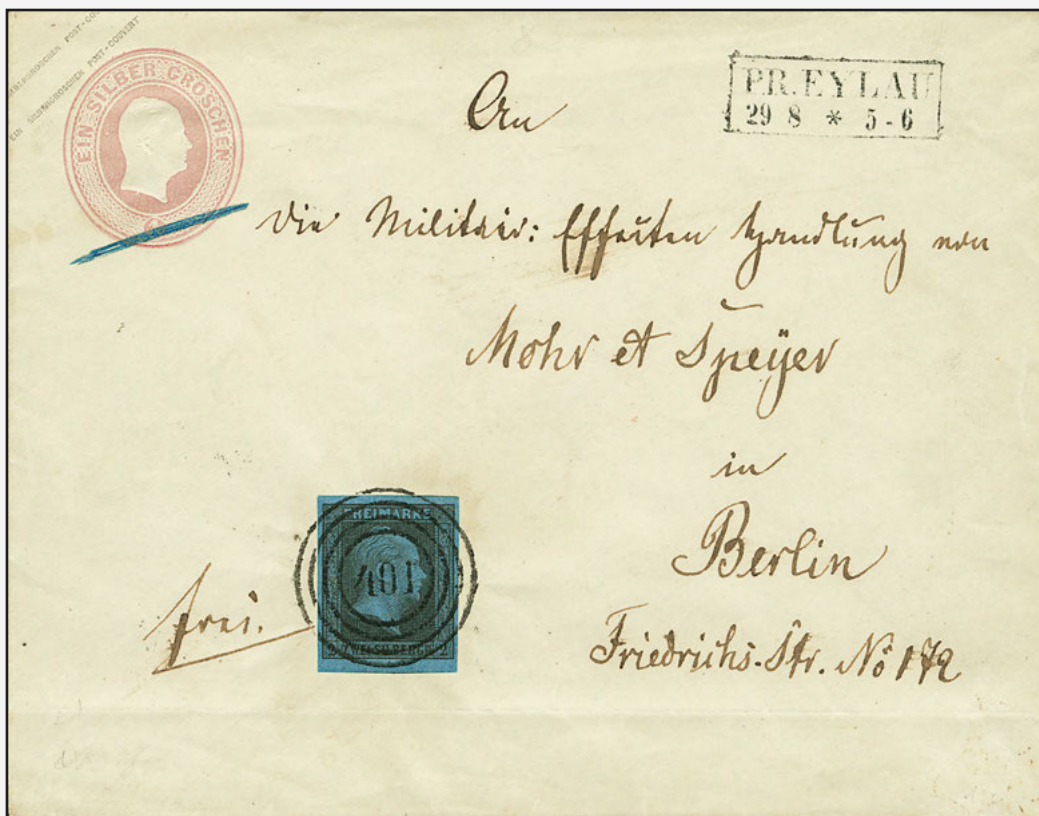 EIN SILBERGROSCHEN POST-COUVERT
EIN SILBER GROSCHEN
PR. EYLAU
29 8 * 5-6
An
die Militair: Effecten Handlung von
Mohr et Speÿer
in
Berlin
Friedrichs-Str. No 172
frei.
FREIMARKE
401
2 ZWEI SILBERGR. 2